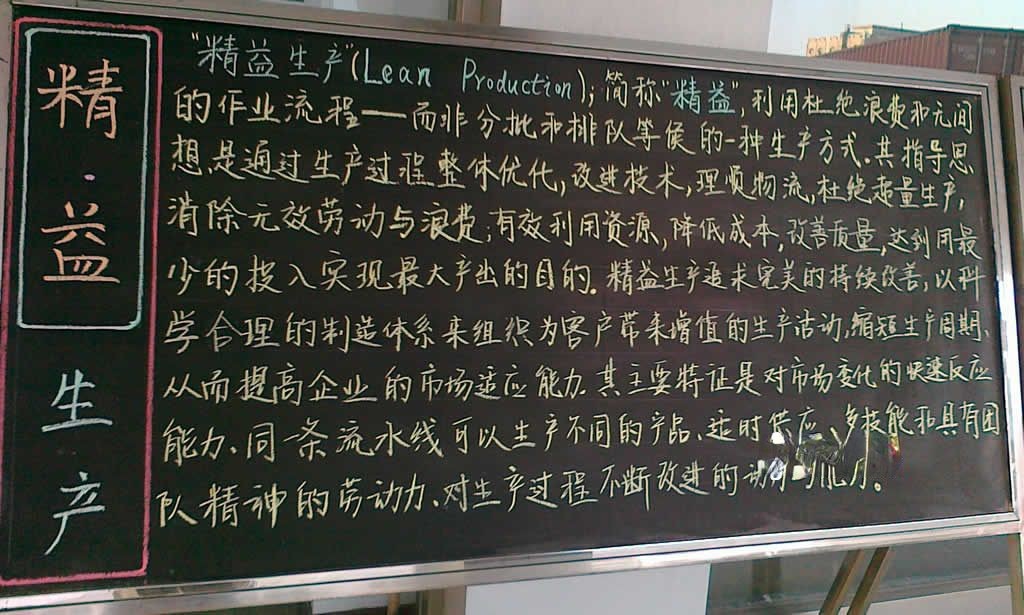 精·益
生产
"精益生产"(Lean Production),简称"精益",利用杜绝浪费和无间
的作业流程——而非分批和排队等候的一种生产方式.其指导思
想是通过生产过程整体优化,改进技术,理顺物流,杜绝超量生产,
消除无效劳动与浪费,有效利用资源,降低成本,改善质量,达到用最
少的投入实现最大产出的目的.精益生产追求完美的持续改善,以科
学合理的制造体系来组织为客户带来增值的生产活动,缩短生产周期、
从而提高企业的市场适应能力.其主要特征是对市场变化的快速反应
能力、同一条流水线可以生产不同的产品、适时供应、多技能和具有团
队精神的劳动力、对生产过程不断改进的动力与能力。